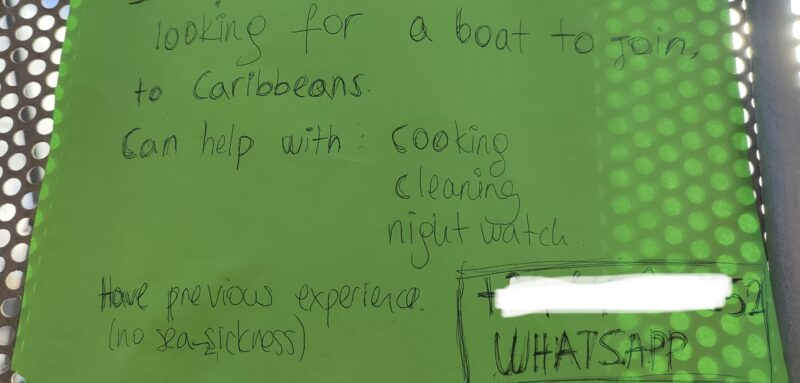 looking for a boat to join,
to Caribbeans.
Can help with: cooking
cleaning
night watch.
Have previous experience.
(no sea-sickness)
WHATSAPP